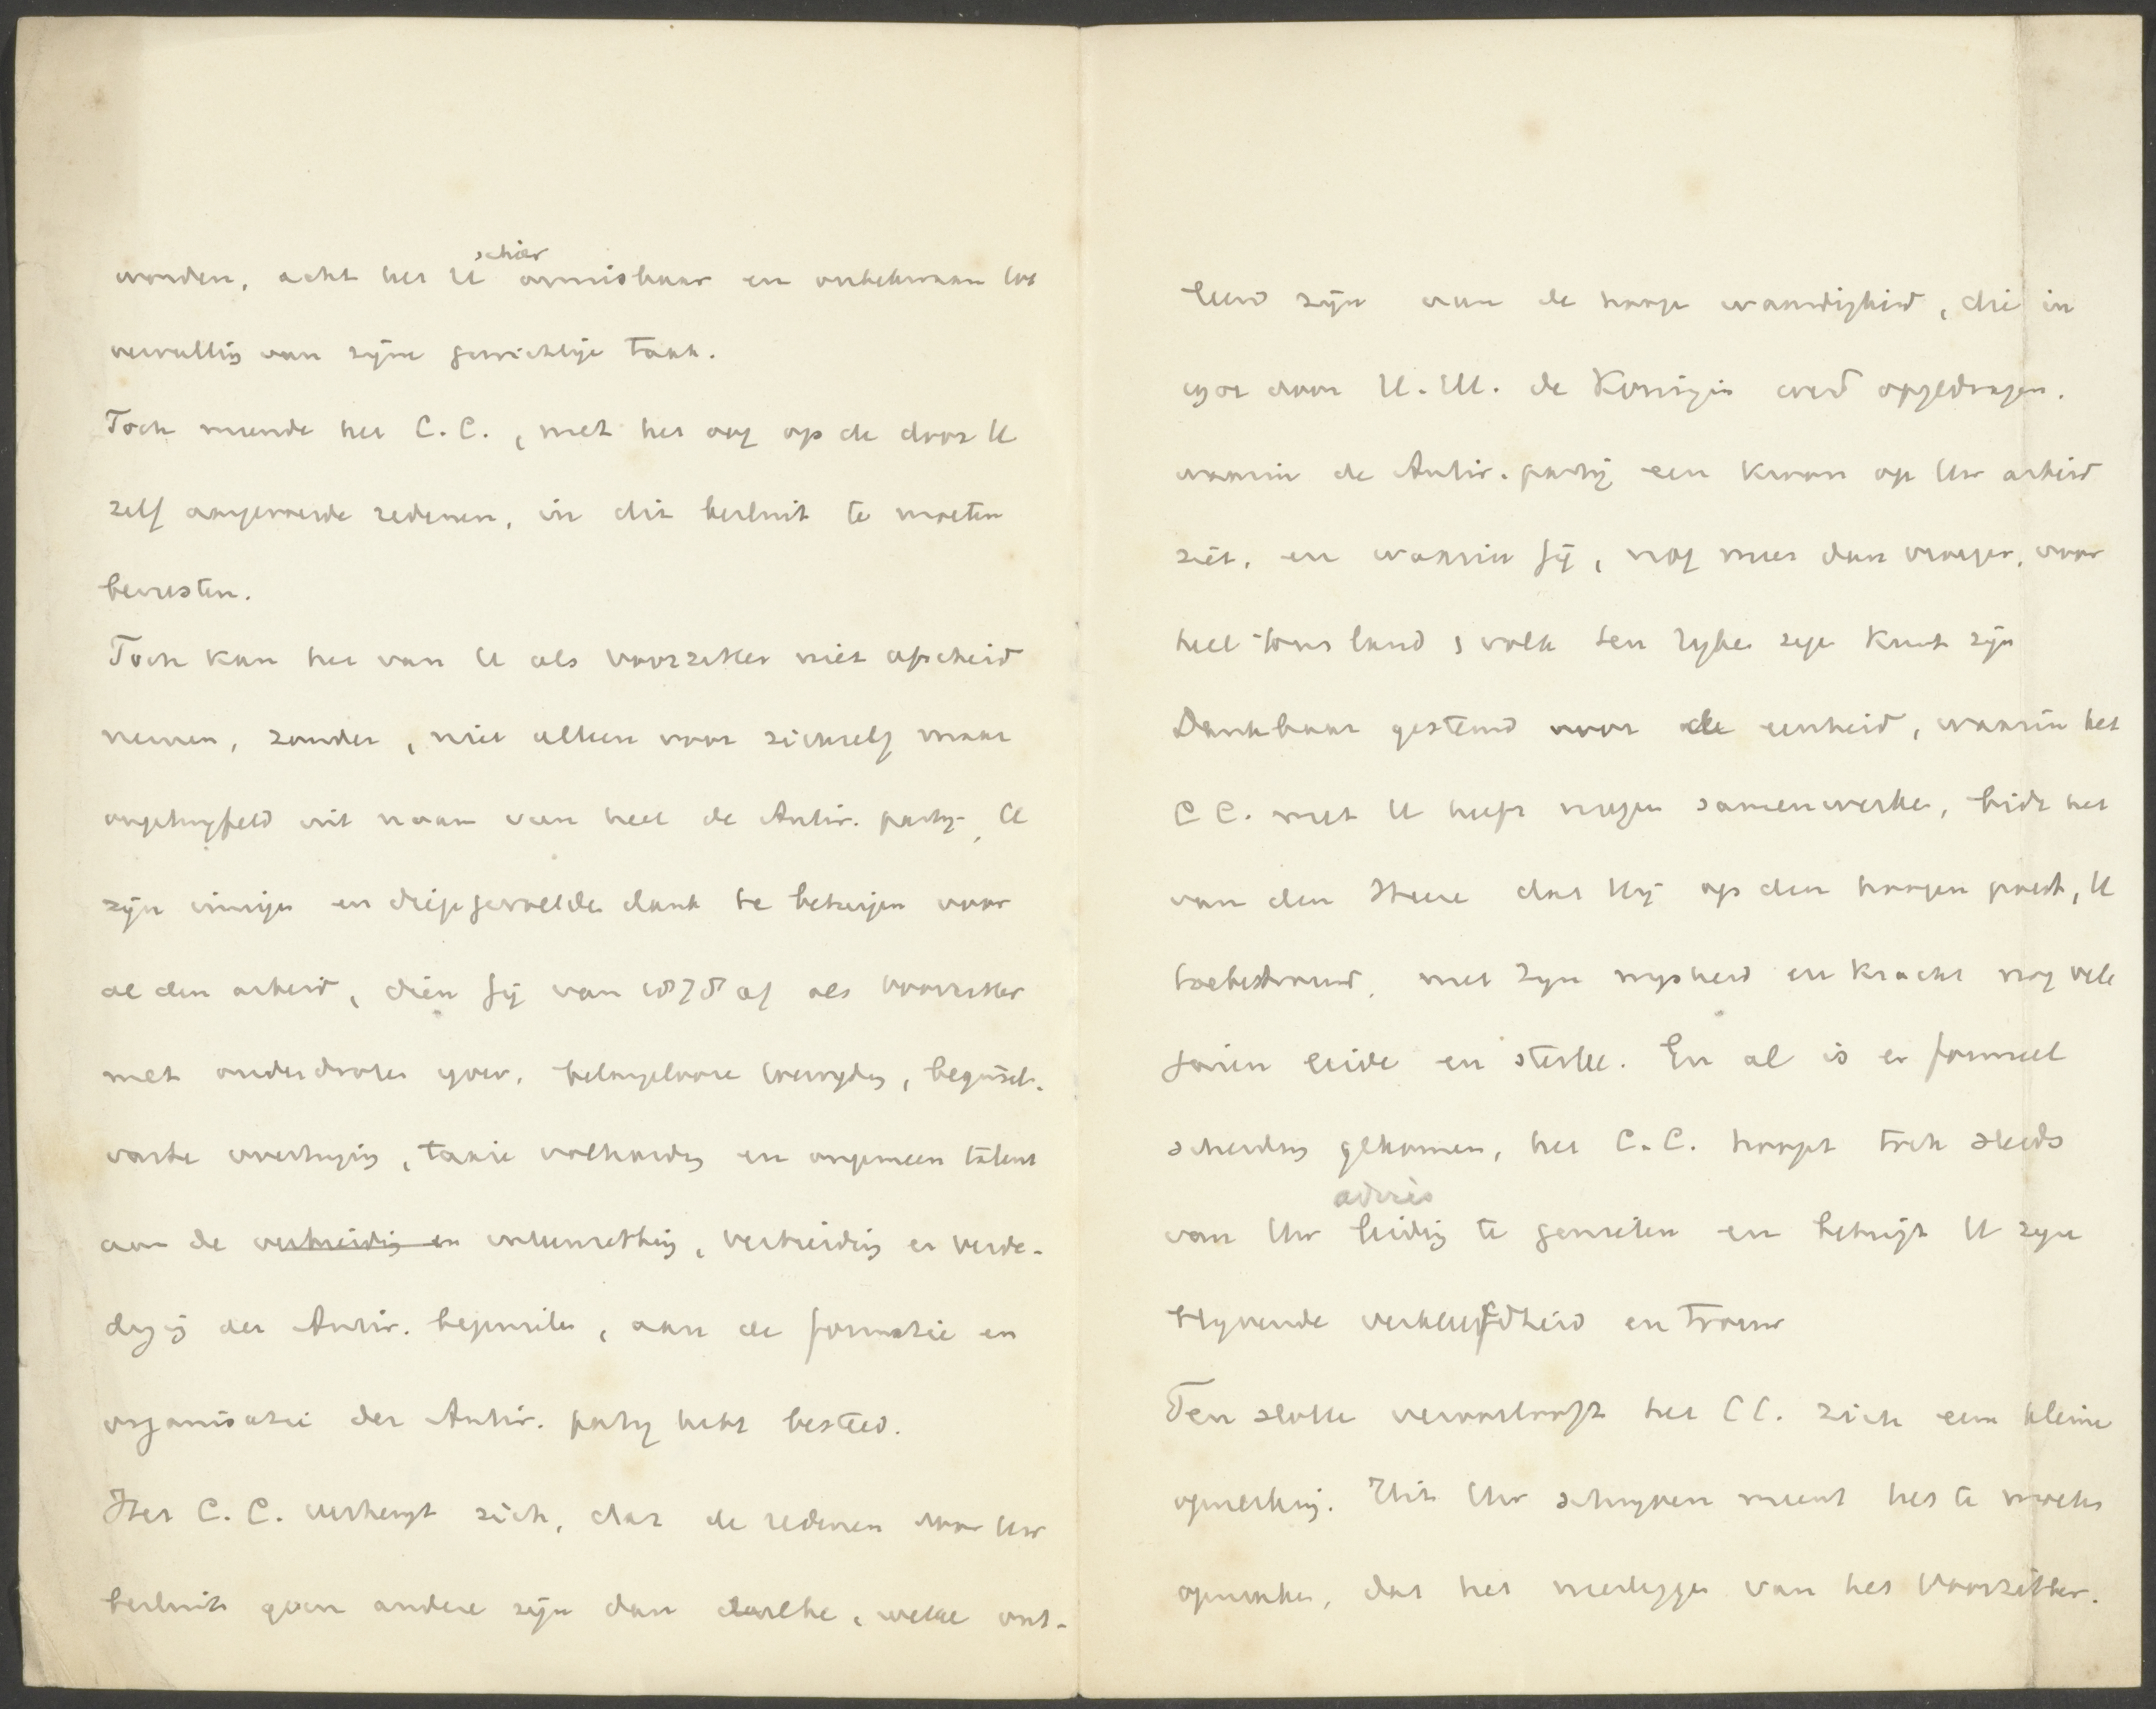 worden, acht het U schier onmisbaar en onbekwaam tot
vervulling van zijne gewichtige taak.
Toch meende het C.C., met het oog op de door U
zelf aangevoerde redenen, in dit besluit te moeten
berusten.
Toch kan het van U als voorzitter niet afscheid
nemen, zonder, niet alleen voor zichzelf maar
ongetwijfeld uit naam van heel de Antir. partij, U
zijn innigen en diepgevoelden dank te betuigen voor
al den arbeid, dien Gij van 1878 af als voorzitter
met onverdroten ijver, belangelooze toewijding, beginsel-
vaste overtuiging, taaie volharding en ongemeen talent
aan de verbreiding en ontwikkeling, verbreiding en verde-
diging der Antir. beginselen, aan de formatie en
organisatie der Antir. partij hebt besteed.
Het C.C. verheugt zich, dat de redenen voor Uw
besluit geen andere zijn dan dezelke, welke ont-
leend zijn aan de hooge waardigheid, die in
1901 door H.M. de Koningin werd opgedragen.
waarin de Antir. partij een kroon op Uw arbeid
ziet, en waarin Gij, nog meer dan vroeger, voor
heel ons land & volk ten rijken zegen kunt zijn
Dankbaar gestemd voor de eenheid, waarin het
C.C. met U heeft mogen samenwerken, bidt het
van den Heere dat Hij op den hoogen post, U
toebetrouwd, met Zijn wijsheid en kracht nog vele
jaren leide en sterke. En al is er formeel
scheiding gekomen, het C.C. hoopt toch steeds
advies
van Uw leiding te genieten en betuigt U zijne
blijvende verkleefdheid en trouw
Ten slotte veroorlooft het C.C. zich eene kleine
opmerking. Uit Uw schrijven meent het te moeten
opmaken, dat het nederleggen van het Voorzitter-